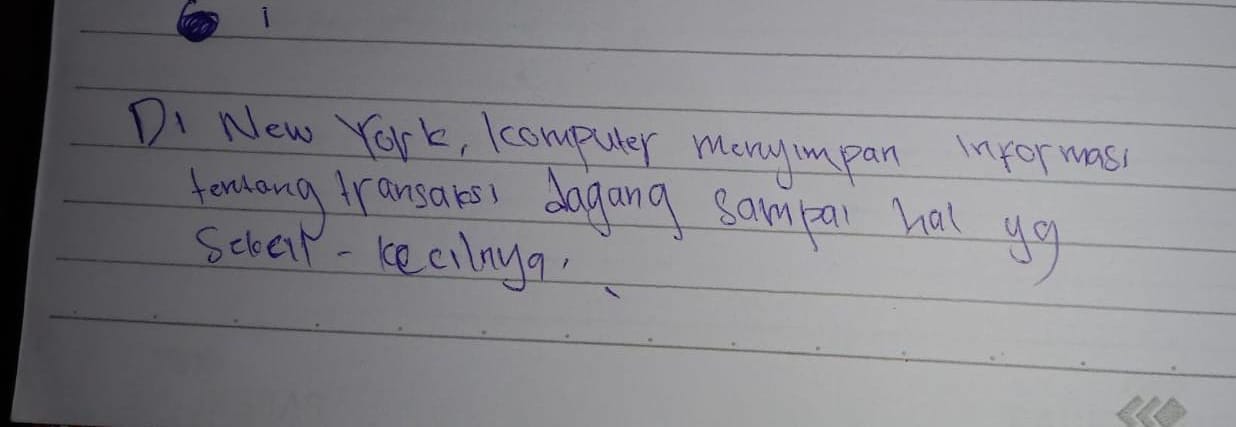 i
Di New York, komputer menyimpan informasi
tentang transaksi dagang sampai hal yg
Sekecil - kecilnya.